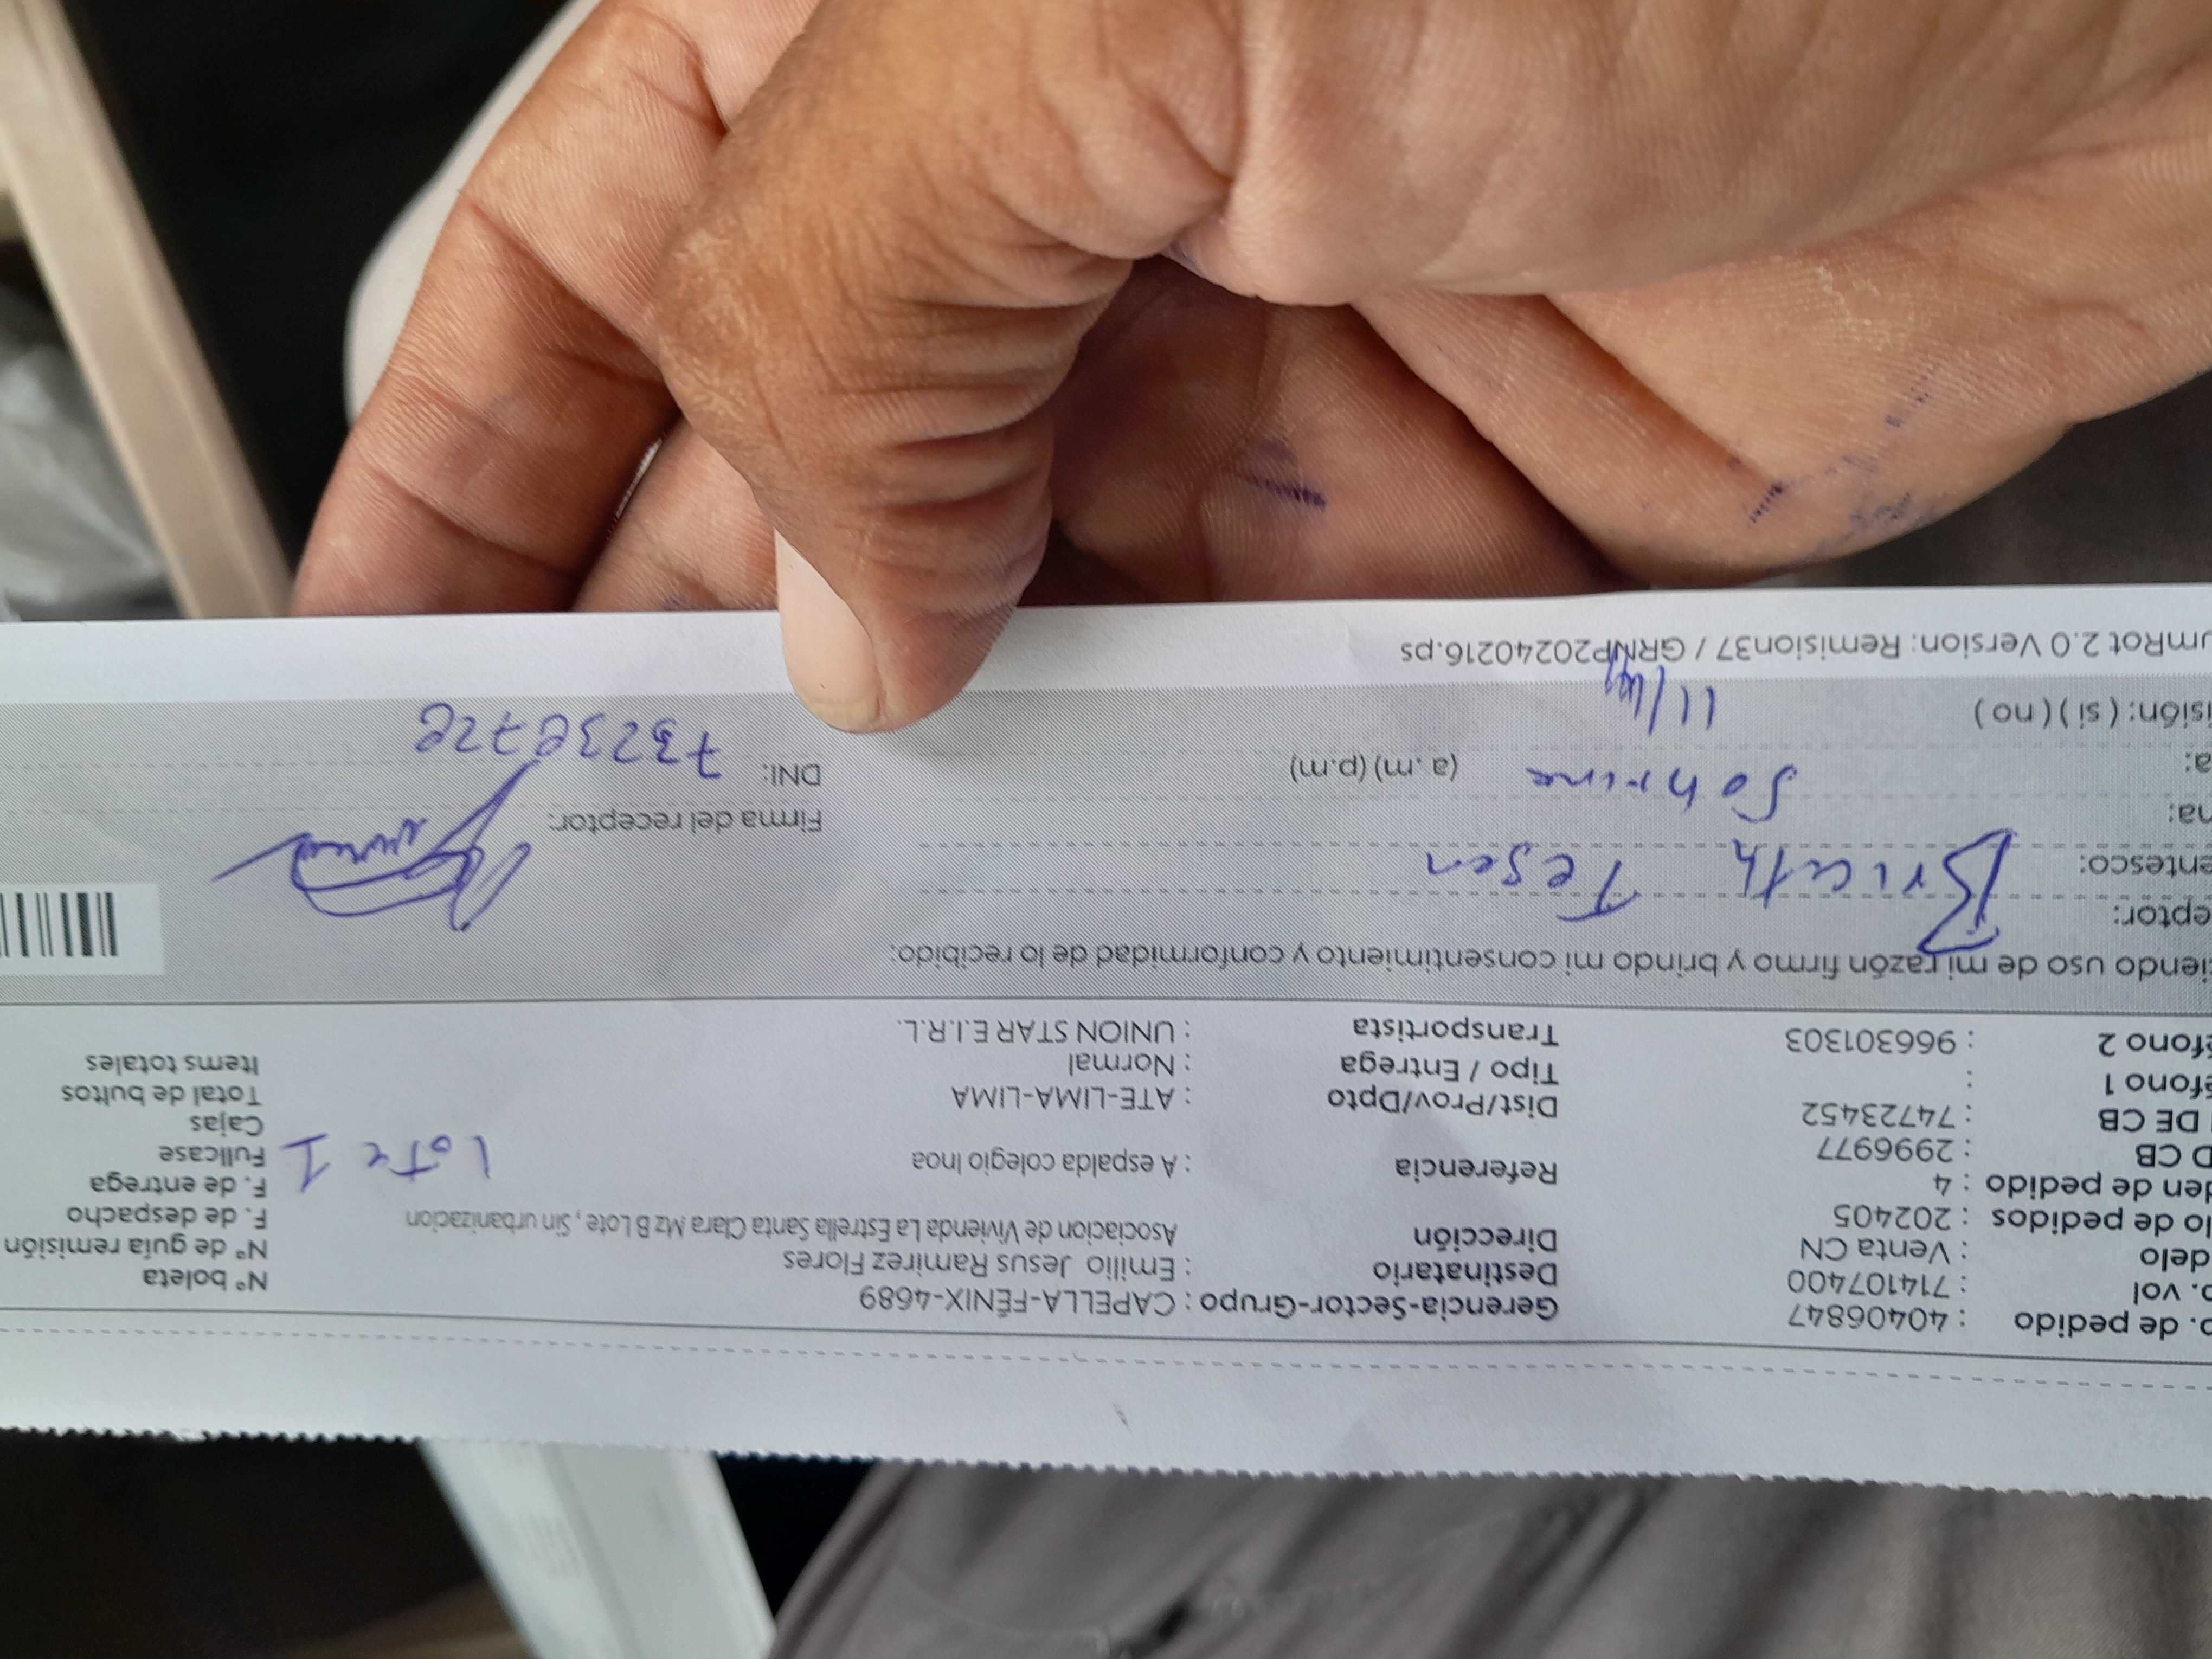 o. de pedido : 40406847
o. vol : 714107400
delo : Venta CN
lo de pedidos : 202405
den de pedido : 4
D CB : 2996977
DE CB : 74723452
éfono 1 :
éfono 2 : 966301303
Gerencia-Sector-Grupo : CAPELLA-FÉNIX-4689
Destinatario : Emilio Jesus Ramirez Flores
Dirección Asociacion de Vivienda La Estrella Santa Clara Mz B Lote , Sin urbanizacion
Lote 1
Referencia : A espalda colegio Inoa
Dist/Prov/Dpto : ATE-LIMA-LIMA
Tipo / Entrega : Normal
Transportista : UNION STAR E.I.R.L.
N° boleta
N° de guía remisión
F. de despacho
F. de entrega
Fullcase
Cajas
Total de bultos
Items totales
iendo uso de mi razón firmo y brindo mi consentimiento y conformidad de lo recibido:
eptor: Briceth Tesen
entesco: Sobrina
na:
a: (a.m) (p.m)
isión: ( si ) ( no )
Firma del receptor:
DNI:
umRot 2.0 Version: Remision37 / GRNP20240216.ps